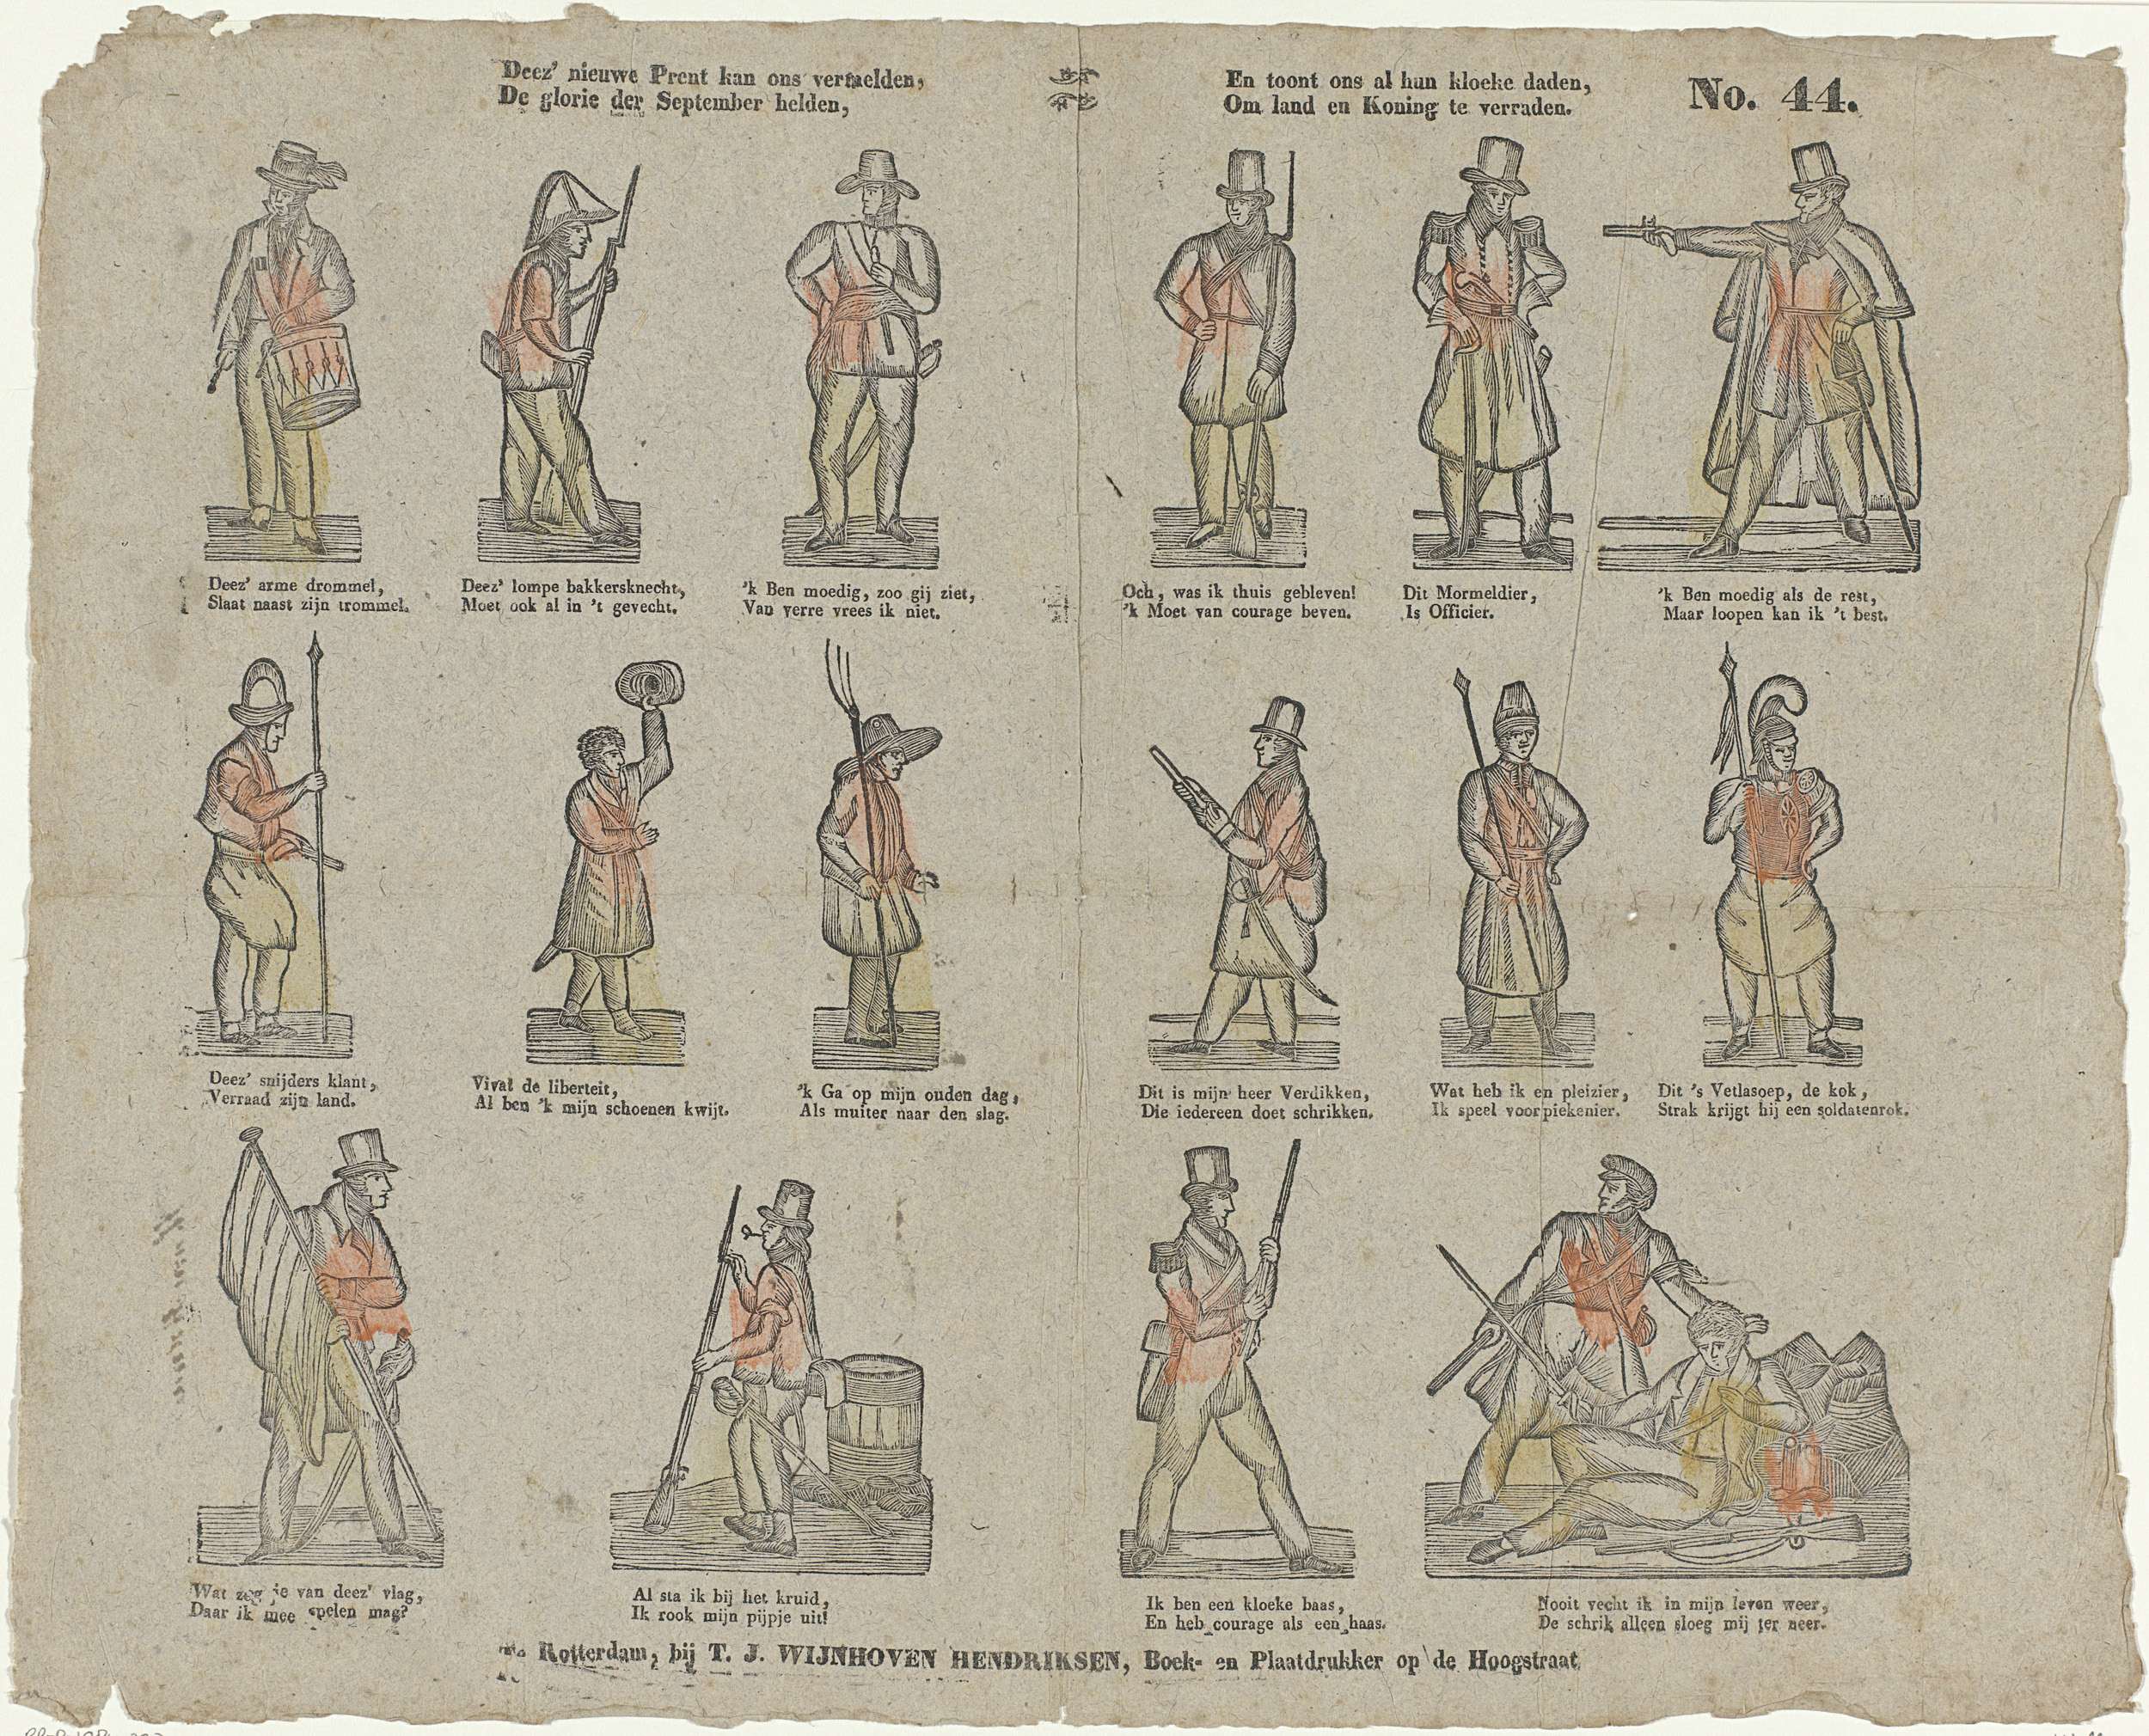 Deez' nieuwe Prent kan ons vermelden,
De glorie der September helden,
En toont ons al hun kloeke daden,
Om land en Koning te verraden.
No. 44.
Deez' arme drommel,
Slaat naast zijn trommel.
Deez' lompe bakkersknecht,
Moet ook al in 't gevecht.
'k Ben moedig, zoo gij ziet,
Van verre vrees ik niet.
Och, was ik thuis gebleven!
'k Moet van courage beven.
Dit Mormeldier,
Is Officier.
'k Ben moedig als de rest,
Maar loopen kan ik 't best.
Deez' snijders klant,
Verraad zijn land.
Vivat de liberteit,
Al ben 'k mijn schoenen kwijt.
'k Ga op mijn ouden dag,
Als muiter naar den slag.
Dit is mijn heer Verdikken,
Die iedereen doet schrikken.
Wat heb ik en pleizier,
Ik speel voor piekenier.
Dit 's Vetlasoep, de kok,
Strak krijgt hij een soldatenrok.
Wat zeg je van deez' vlag,
Daar ik mee spelen mag?
Al sta ik bij het kruid,
Ik rook mijn pijpje uit!
Ik ben een kloeke baas,
En heb courage als een haas.
Nooit vecht ik in mijn leven weer,
De schrik alleen sloeg mij ter neer.
Te Rotterdam, bij T. J. WIJNHOVEN HENDRIKSEN, Boek- en Plaatdrukker op de Hoogstraat